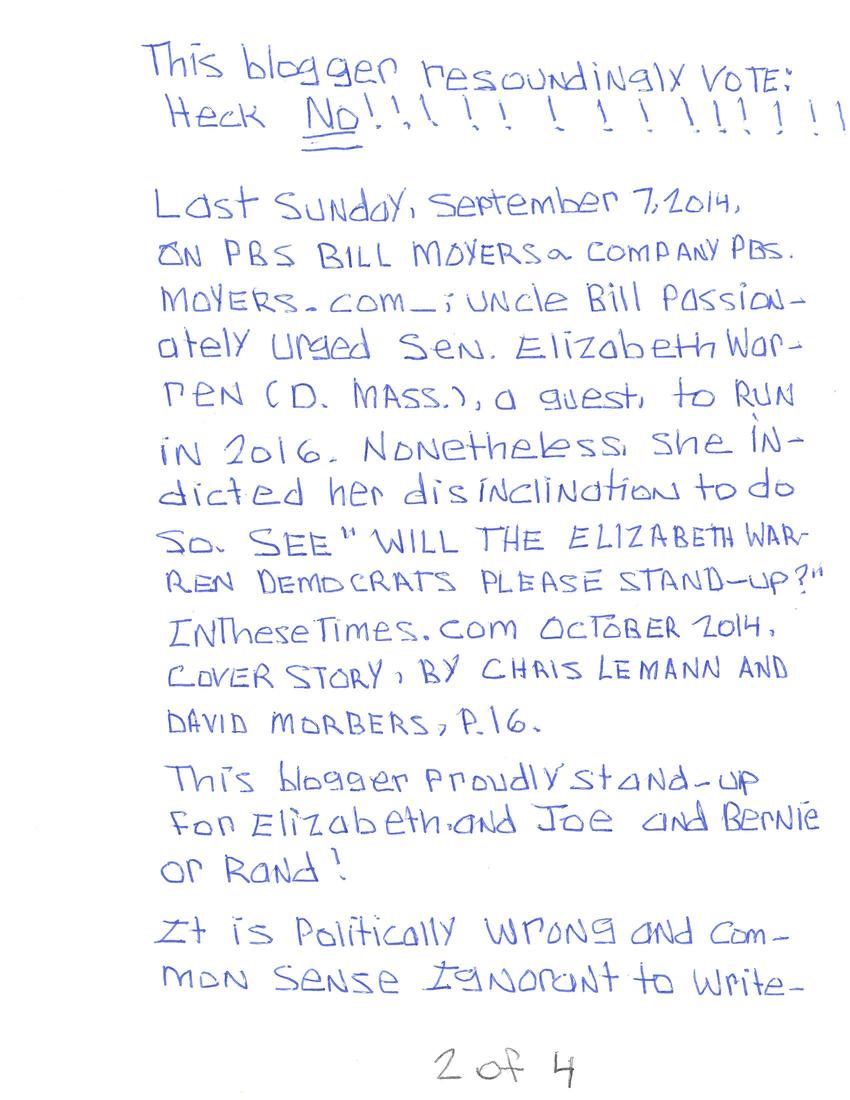 This blogger resoundingly VOTE:
Heck No!!!! !! ! ! ! !!!!!!
Last Sunday, September 7, 2014,
ON PBS BILL MOYERS & COMPANY PBS.
MOYERS.COM_; UNcle Bill Passion-
ately urged Sen. Elizabeth War-
ren (D. MASS.), a guest, to RUN
in 2016. Nonetheless, she in-
dicted her disinclination to do
so. SEE "WILL THE ELIZABETH WAR-
REN DEMOCRATS PLEASE STAND-UP?"
INTheseTimes.com OCTOBER 2014,
COVER STORY, BY CHRIS LEMANN AND
DAVID MORBERS, P.16.
This blogger Proudly stand-up
for Elizabeth and Joe and Bernie
or Rand!
It is Politically wrong and com-
mon sense Ignorant to write-
2 of 4